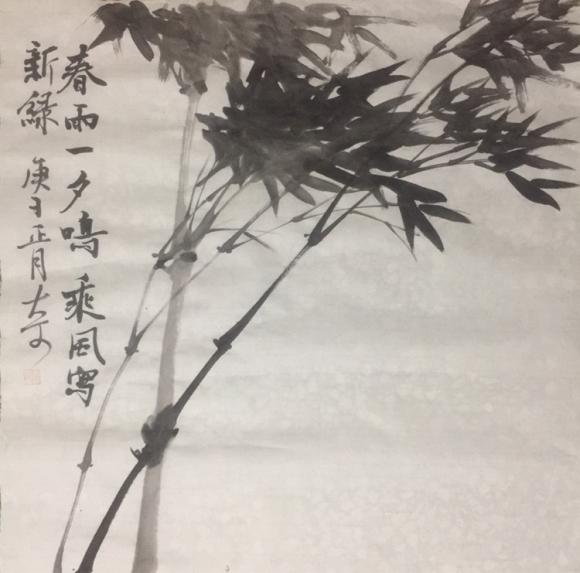 春雨一夕鳴乘風寫
新綠
庚子正月大